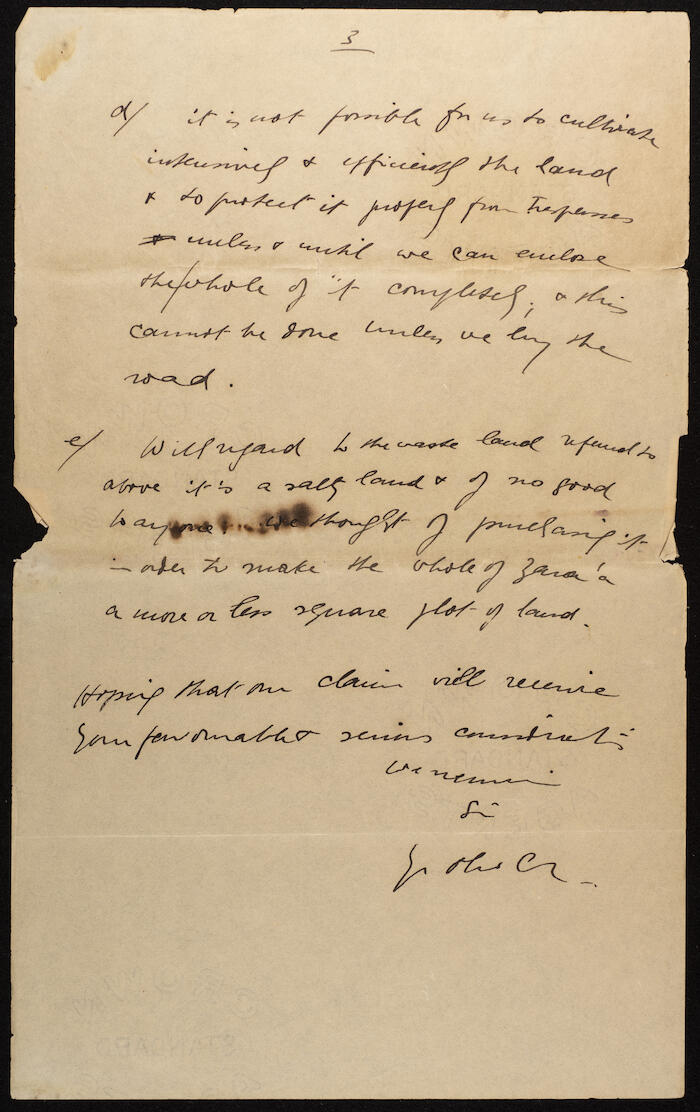 3
d/ it is not possible for us to cultivate
intensively & efficiently the land
& to protect it properly from trespasses
unless & until we can enclose
the whole of it completely; & this
cannot be done unless we buy the
road.
e/ With regard to the waste land referred to
above it is a salty land & of no good
to anyone. we thought of purchasing it
in order to make the whole of Zara'a
a more or less square plot of land.
Hoping that our claim will receive
your favourable & serious consideration
We remain
Sir